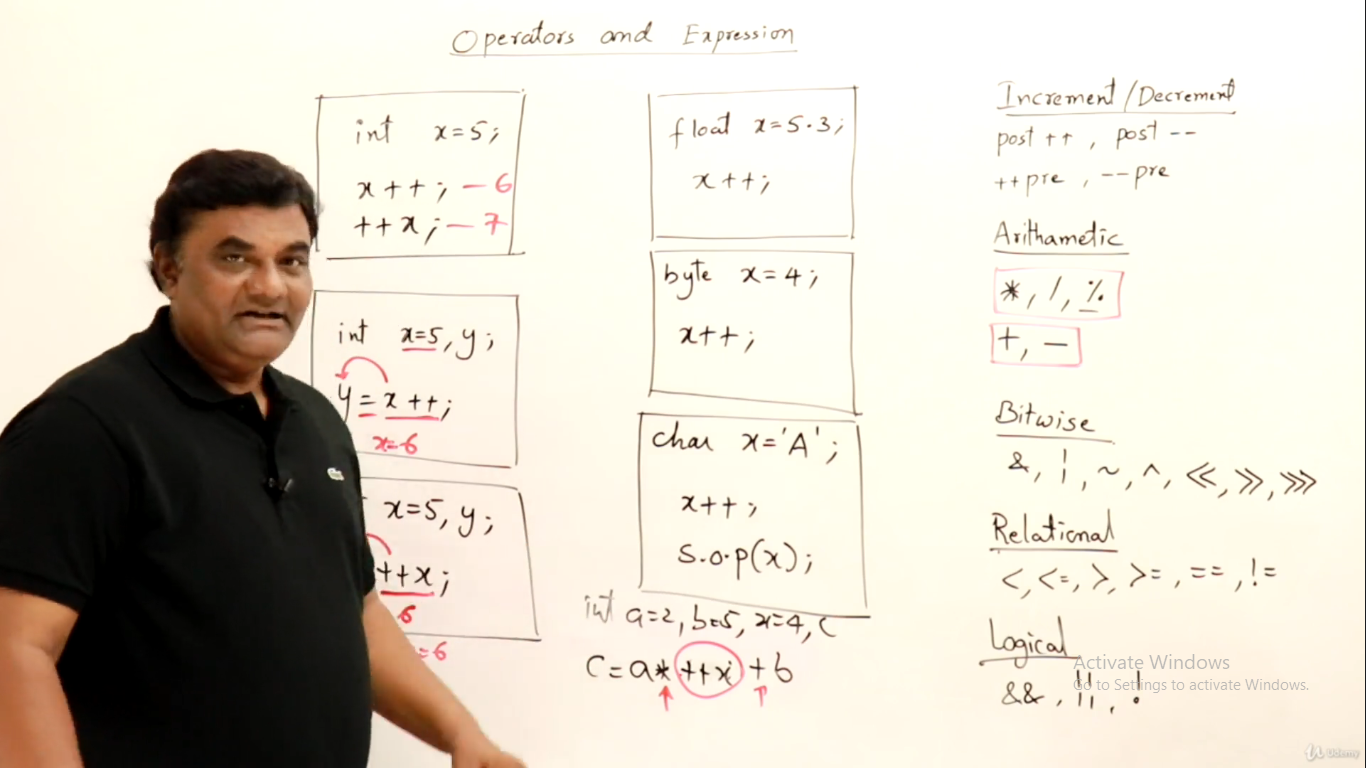 Operators and Expression
int x=5;
x++; -6
++x; -7
int x=5, y;
y=x++;
x=6
x=5, y;
++x;
6
=6
float x=5.3;
x++;
byte x=4;
x++;
char x='A';
x++;
S.o.p(x);
int a=2, b=5, x=4, c
c=a*++x+b
Increment/Decrement
post++, post--
++pre, --pre
Arithametic
*, /, %
+, -
Bitwise
&, |, ~, ^, <<, >>, >>>
Relational
<, <=, >, >=, ==, !=
Logical
&&, ||, !
Activate Windows
Go to Settings to activate Windows.
Udemy